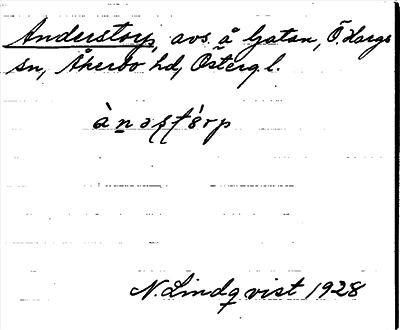 Anderstorp, avs. å Gatan, Ö. Hargs
sn, Åkerbo hd, Österg. l.
N. Lindqvist 1928